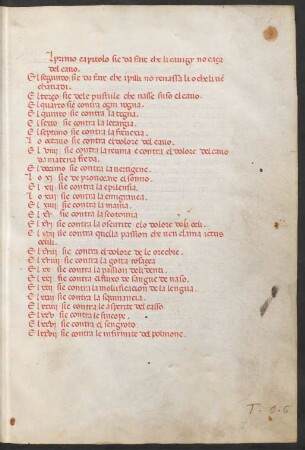 l primo capitolo sie de fare che li cauigy no caça
del cavo.
E l segundo sie de fare che i pili no renassa li o che li ne
chauadi.
E l terço sie dele pustule che nasse suso el cavo.
E l quarto sie contra ogni rogna.
E l quinto sie contra la tegna.
E l sexto sie contra la letargia.
E l septimo sie contra la frenexia.
L o octauo sie contra el dolore del cavo.
E l viiij sie contra la reuma e contra el dolore del cavo
da materia freda.
E l decimo sie contra la uertigene.
L o xj sie de prouocare el sonno.
E l xij sie contra la epilensia.
L o xiij sie contra la emigranea.
E l xiiij sie contra la mania.
E l xv sie contra la scotomia
E l xvj sie contra la oscurite e lo dolore deli ochi.
E l xvij sie contra quella passion che uen clama ictus
oculi.
E l xviij sie contra el dolore de le orechie.
E l xviiij sie contra la gotta rosacea
E l xx sie contra la passion deli denti.
E l xxj sie contra el fluxo de sangue de naso.
E l xxij sie contra la mollificacion de la lengua.
E l xxiij sie contra la squinancia.
E l xxiiij sie contra le asperite del casso.
E l xxv sie contra le sincope.
E l xxvj sie contra el sengioto
E l xxvij sie contra le infirmite del polmone.
T. 9. 6